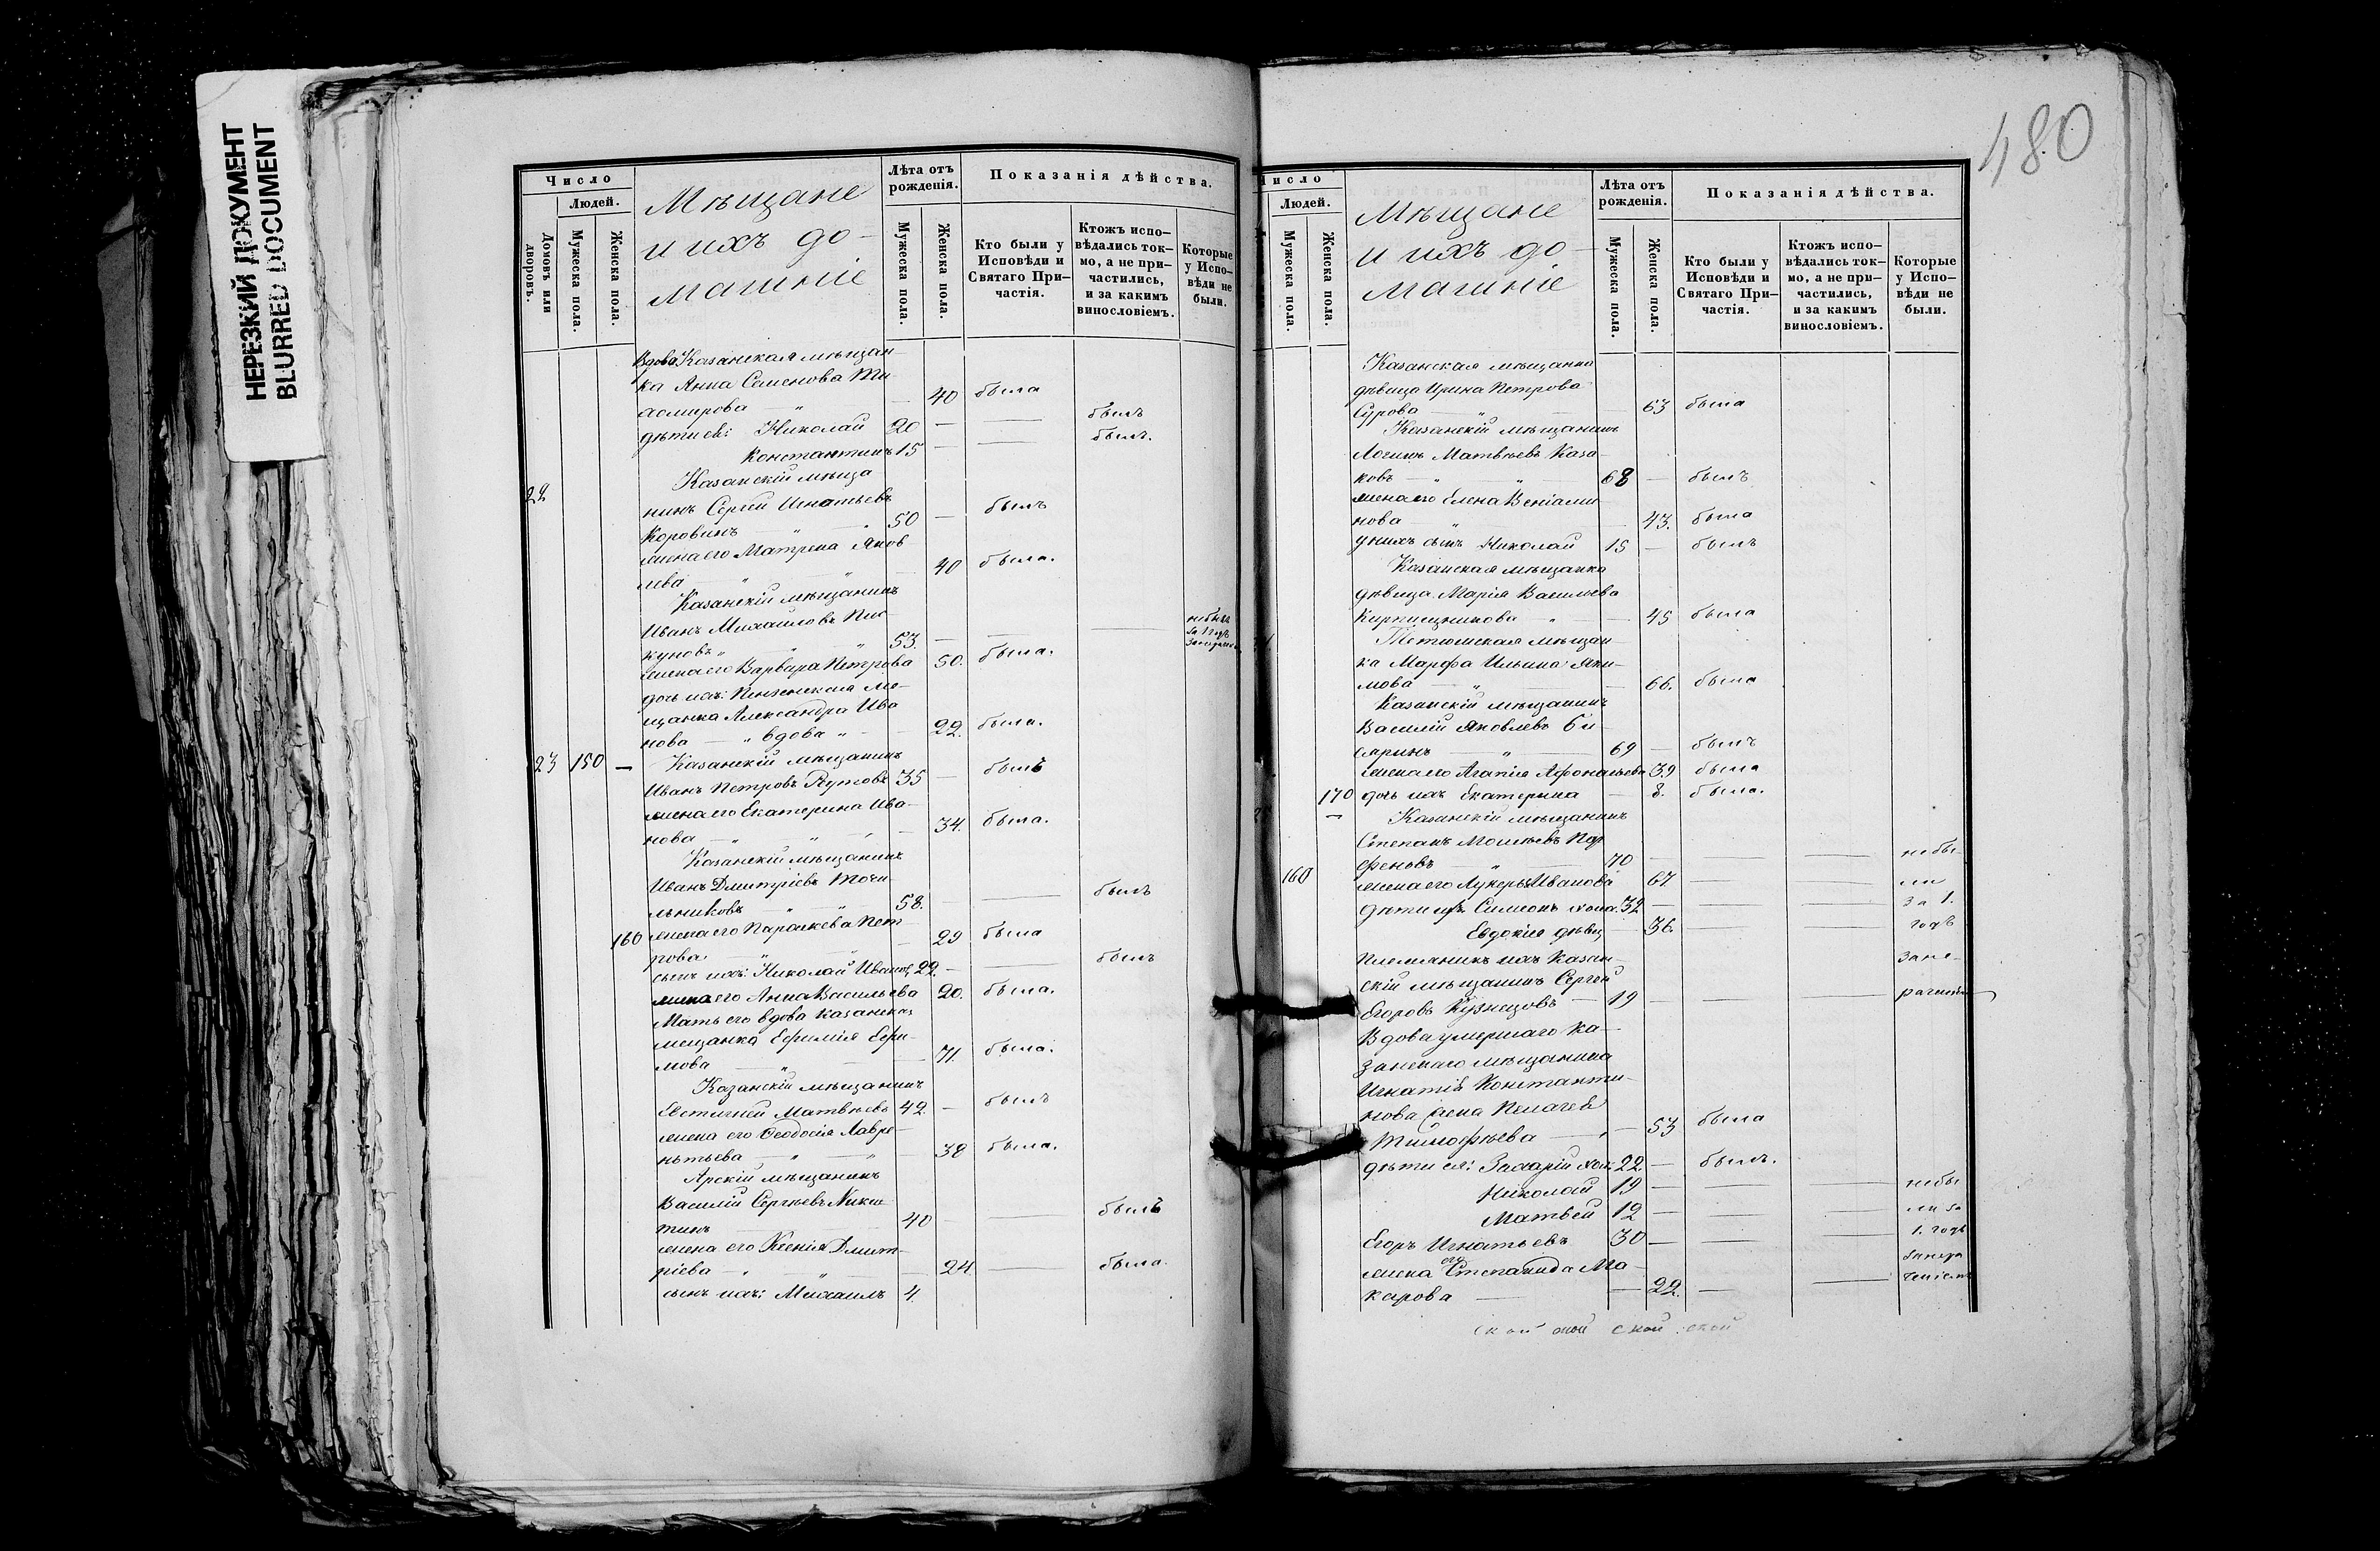 НЕРЕЗКИЙ ДОКУМЕНТ
BLURRED DOCUMENT
Число
Людей.
Домовъ или дворовъ.
Мужеска пола.
Женска пола.
Мѣщане
и ихъ до-
машніе
Лѣта отъ рожденія.
Мужеска пола.
Женска пола.
Показанія дѣйства.
Кто были у Исповѣди и Святаго При-частія.
Ктожъ испо-вѣдались ток-мо, а не при-частились, и за какимъ винословіемъ.
Которые у Испо-вѣди не были.
Вдова Казанская мѣщан
ка Анна Семенова
40 была
дѣти ея: Николай 20 — — былъ
Константинъ 15 — — былъ.
22 Казанскій мѣща
нинъ Сергѣй Игнатьевъ
Коровинъ " " 50 — былъ
жена его Матрена Яков
лева " " 40 была.
Казанскій мѣщанинъ
Иванъ Михайловъ Пис
куновъ " " 53. — — —
жена его Варвара Петрова 50. была.
дочь ихъ: Пензенская ме-
щанка Александра Ива
нова — " вдова " — 22. была.
23 150 — Казанскій мѣщанинъ
Иванъ Петровъ 35 — былъ
жена его Екатерина Ива-
нова — " " — 34. была.
Казанскій мѣщанинъ
Иванъ Дмитріевъ Точи-
льниковъ " " 58. — — былъ
160 жена его Параскева Пет
рова " — 29 была
сынъ ихъ: Николай Иванов 22. — — былъ
жена его Анна Васильева 20. была.
Мать его вдова казанская
мещанка Ефимія Ефи-
мова " — 71. была.
Казанскій мѣщанинъ
Евстигней Матвѣевъ 42 — былъ
жена его Ѳеодосія Лавре-
нтьева — " — " — 38 была.
Арскій мѣщанинъ
Василій Сергѣевъ Ники-
тинъ 40 — былъ
жена его Ксенія Дмит-
ріева — " " — 24 — была.
сынъ ихъ: Михаилъ 4.
480
Число
Людей.
Мужеска пола.
Женска пола.
Мѣщане
и ихъ до-
машніе
Лѣта отъ рожденія.
Мужеска пола.
Женска пола.
Показанія дѣйства.
Кто были у Исповѣди и Святаго При-частія.
Ктожъ испо-вѣдались ток-мо, а не при-частились, и за какимъ винословіемъ.
Которые у Испо-вѣди не были.
Казанская мѣщанка
дѣвица Ирина Петрова
Сурова — " — 63 была
Казанскій мѣщанинъ
Логинъ Матвѣевъ Каза-
ковъ — " " 68 — былъ
жена его Елена Веніами-
нова " — 43. была
у нихъ сынъ Николай 15 — былъ
Казанская мѣщанка
дѣвица Марія Васильева
Кирпищникова " — 45 была
Тетюшская мѣщан
ка Марфа Ильина Яки-
мова — " — 66. была
Казанскій мѣщанинъ
Василій Яковлевъ
— " — 69 — былъ
жена его Агапія Афонасьева 39 была
170 дочь ихъ Екатерина — 8. была.
— Казанскій мѣщанинъ
Степанъ Моисѣевъ Пар
феновъ — " — 70 — — — не бы-
160 жена его Лукерья Иванова 67 — — ли
дѣти ихъ Симеонъ холо. 32 — — — за 1.
Евдокія дѣвиц — 36. — — годъ
Племянникъ ихъ Казан- зане-
скій мѣщанинъ Сергей
Егоровъ Кузнецовъ — 19 — — — раченіем
Вдова умершаго Ка-
занскаго мѣщанина
Игнатія Константи-
нова жена Пелагея
Тимофѣева — " — 53 была
дѣти ея: Захарій хол. 22. — былъ.
Николай 19 — — — не бы
Матвей 12 — — — ли за
Егоръ Игнатьевъ 30 — — — 1. годъ
жена его Степанида Ма- занера
карова — — 22. — — ченіем
ской ской ской ской